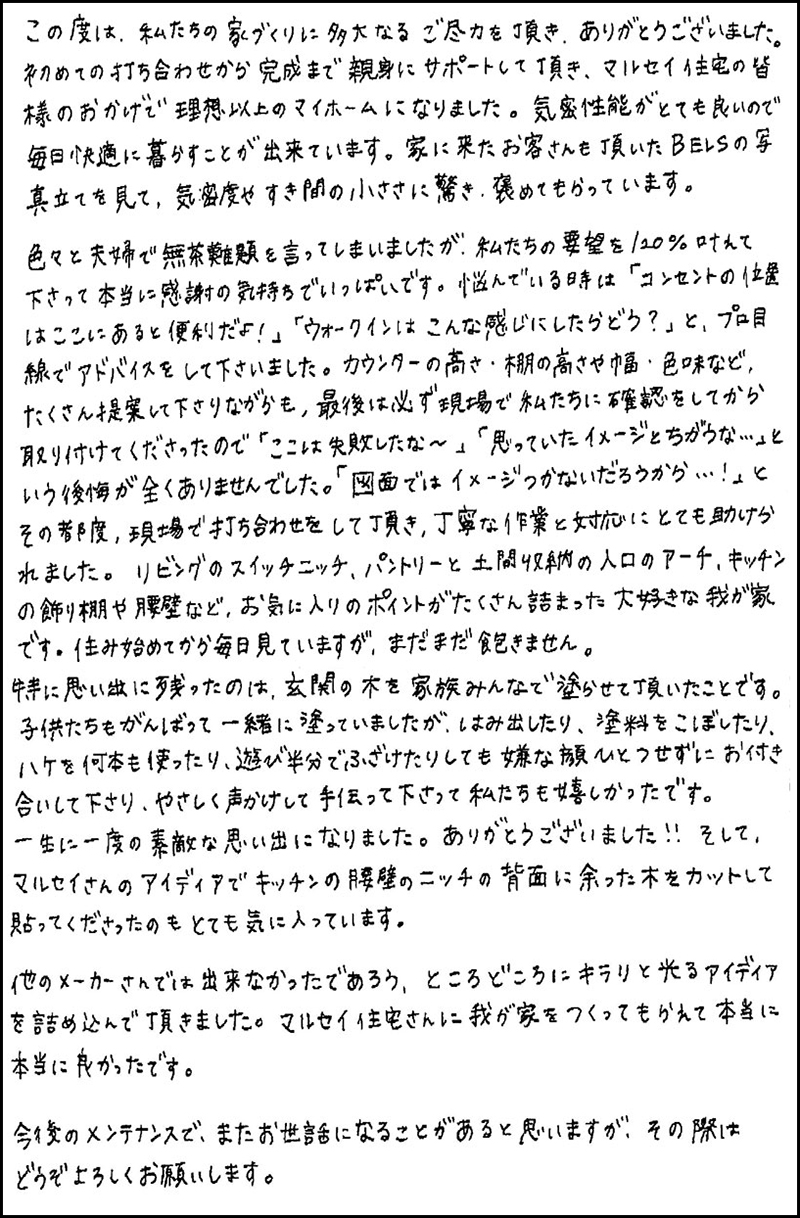 この度は、私たちの家づくりに多大なるご尽力を頂き、ありがとうございました。
初めての打ち合わせから完成まで親身にサポートして頂き、マルセイ住宅の皆
様のおかげで理想以上のマイホームになりました。気密性能がとても良いので
毎日快適に暮らすことが出来ています。家に来たお客さんも頂いたBELSの写
真立てを見て、気密度やすき間の小ささに驚き、褒めてもらっています。
色々と夫婦で無茶難題を言ってしまいましたが、私たちの要望を120%叶えて
下さって本当に感謝の気持ちでいっぱいです。悩んでいる時は「コンセントの位置
はここにあると便利だよ!」「ウォークインはこんな感じにしたらどう?」と、プロ目
線でアドバイスをして下さいました。カウンターの高さ・棚の高さや幅・色味など、
たくさん提案して下さりながらも、最後は必ず現場で私たちに確認をしてから
取り付けてくださったので「ここは失敗したな〜」「思っていたイメージとちがうな…」と
いう後悔が全くありませんでした。「図面ではイメージつかないだろうから…!」と
その都度、現場で打ち合わせをして頂き、丁寧な作業と対応にとても助けら
れました。リビングのスイッチニッチ、パントリーと土間収納の入口のアーチ、キッチン
の飾り棚や腰壁など、お気に入りのポイントがたくさん詰まった大好きな我が家
です。住み始めてから毎日見ていますが、まだまだ飽きません。
特に思い出に残ったのは、玄関の木を家族みんなで塗らせて頂いたことです。
子供たちもがんばって一緒に塗っていましたが、はみ出したり、塗料をこぼしたり、
ハケを何本も使ったり、遊び半分でふざけたりしても嫌な顔ひとつせずにお付き
合いして下さり、やさしく声かけして手伝って下さって私たちも嬉しかったです。
一生に一度の素敵な思い出になりました。ありがとうございました!!そして、
マルセイさんのアイディアでキッチンの腰壁のニッチの背面に余った木をカットして
貼ってくださったのもとても気に入っています。
他のメーカーさんでは出来なかったであろう、ところどころにキラリと光るアイディア
を詰め込んで頂きました。マルセイ住宅さんに我が家をつくってもらえて本当に
本当に良かったです。
今後のメンテナンスで、またお世話になることがあると思いますが、その際は
どうぞよろしくお願いします。